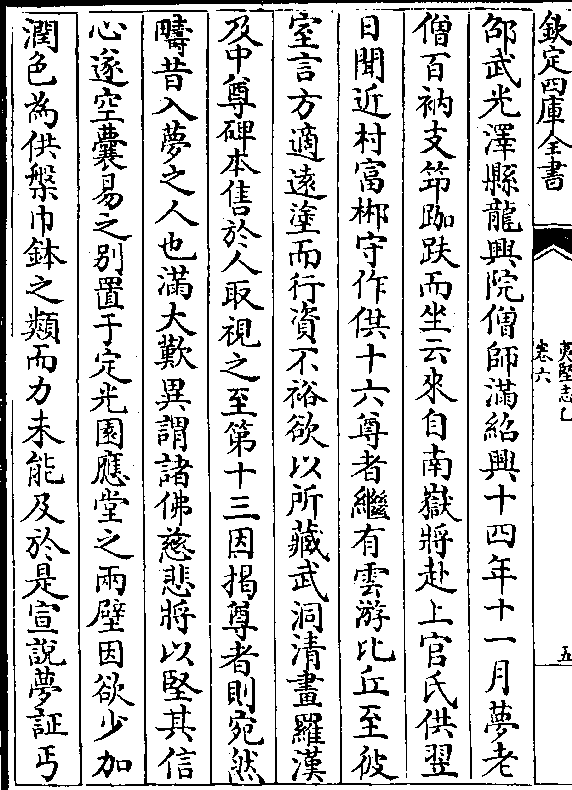 欽定四庫全書
夷堅志乙
卷六
五
邵武光澤縣龍興院僧師滿紹興十四年十一月夢老
僧百衲支笻跏趺而坐云來自南嶽將赴上官氏供翌
日聞近村富郴守作供十六尊者繼有雲游比丘至彼
室言方適遠塗而行資不裕欲以所藏武洞清畫羅漢
及中尊碑本售於人取視之至第十三因揭尊者則宛然
疇昔入夢之人也滿大歎異謂諸佛慈悲將以堅其信
心遂空囊易之别置于定光圓應堂之兩壁因欲少加
潤色為供槃巾鉢之類而力未能及於是宣說夢証丐